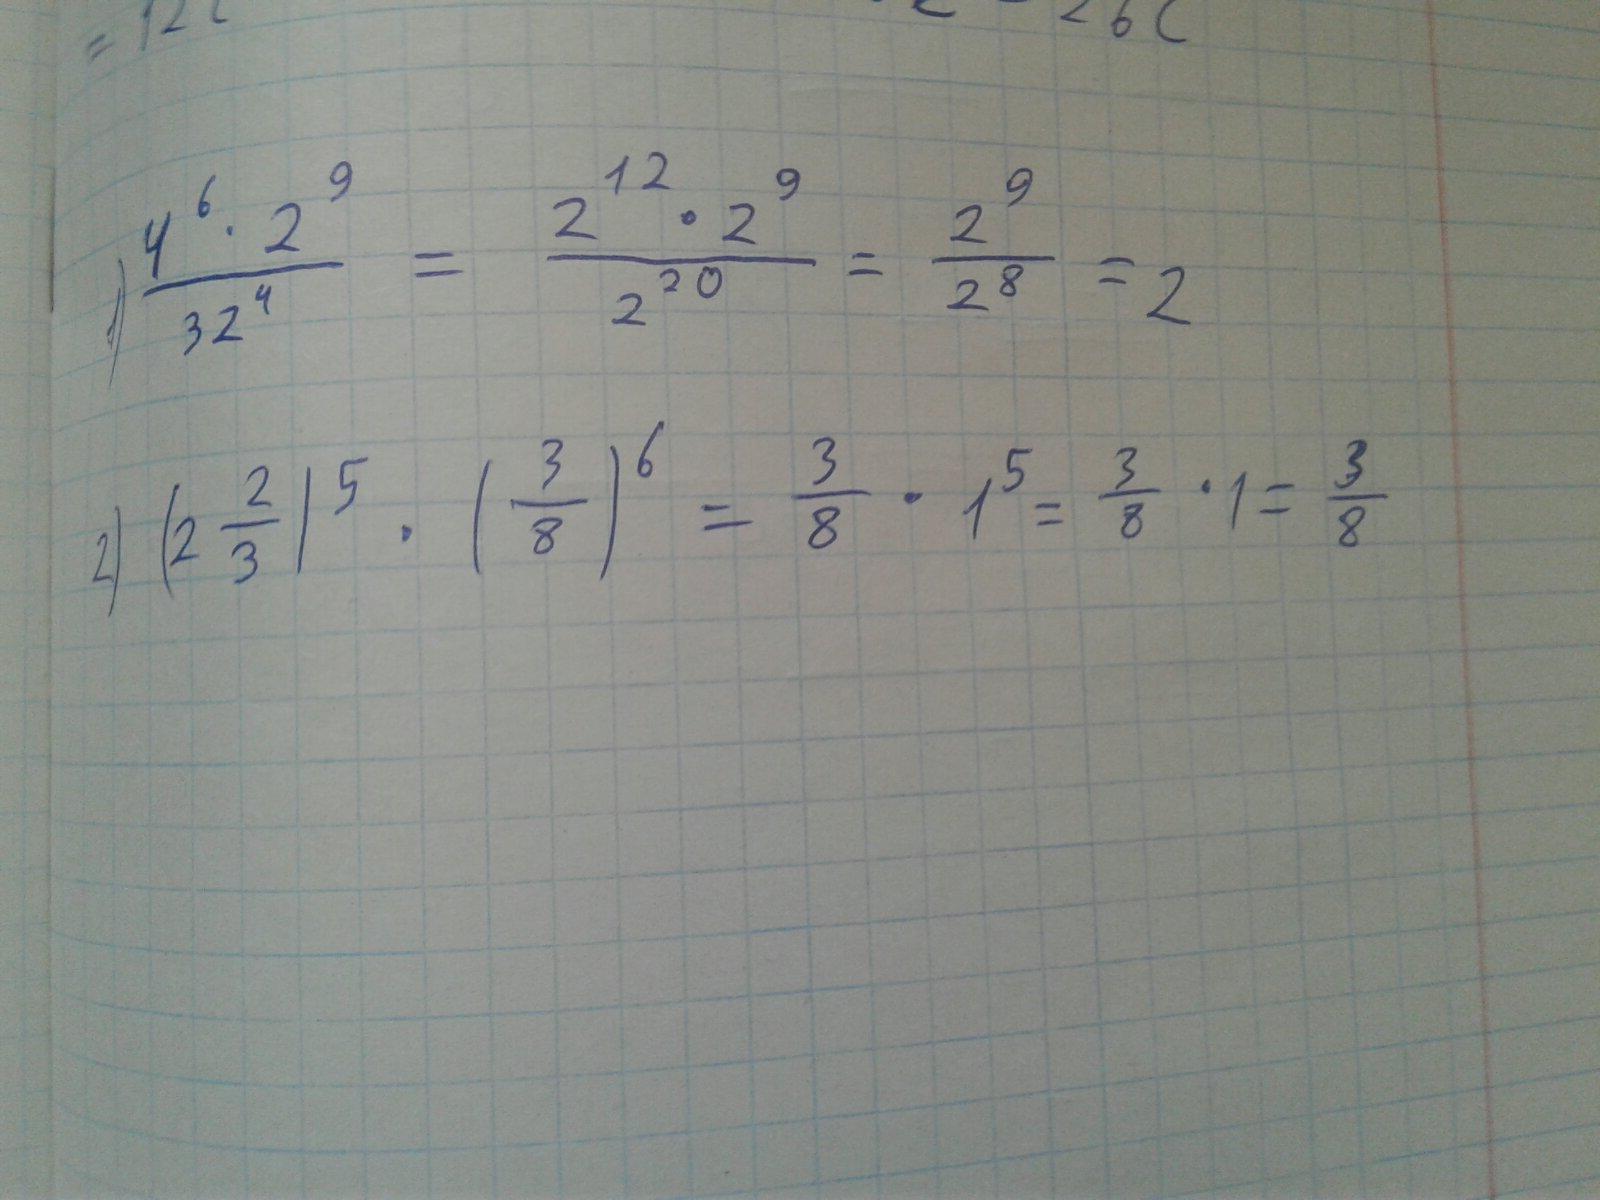 = 12
= 26
1) 4^6 · 2^9 / 32^4 = 2^12 · 2^9 / 2^20 = 2^9 / 2^8 = 2
2) (2 2/3)^5 · (3/8)^6 = 3/8 · 1^5 = 3/8 · 1 = 3/8